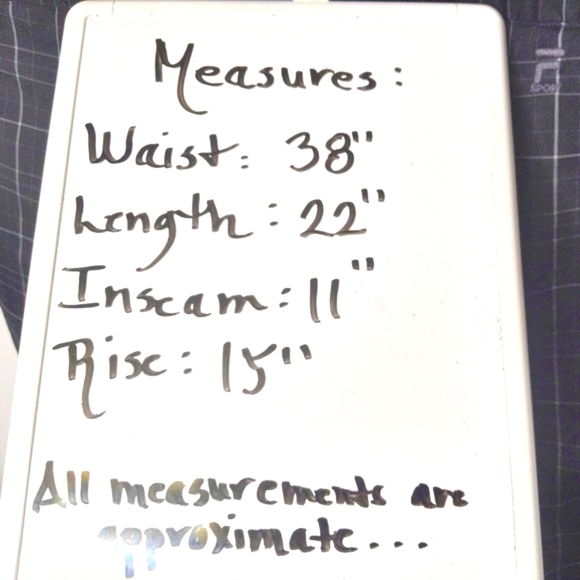 Measures:
Waist: 38"
Length: 22"
Inseam: 11"
Rise: 15"
All measurements are
approximate...
F
SPORT